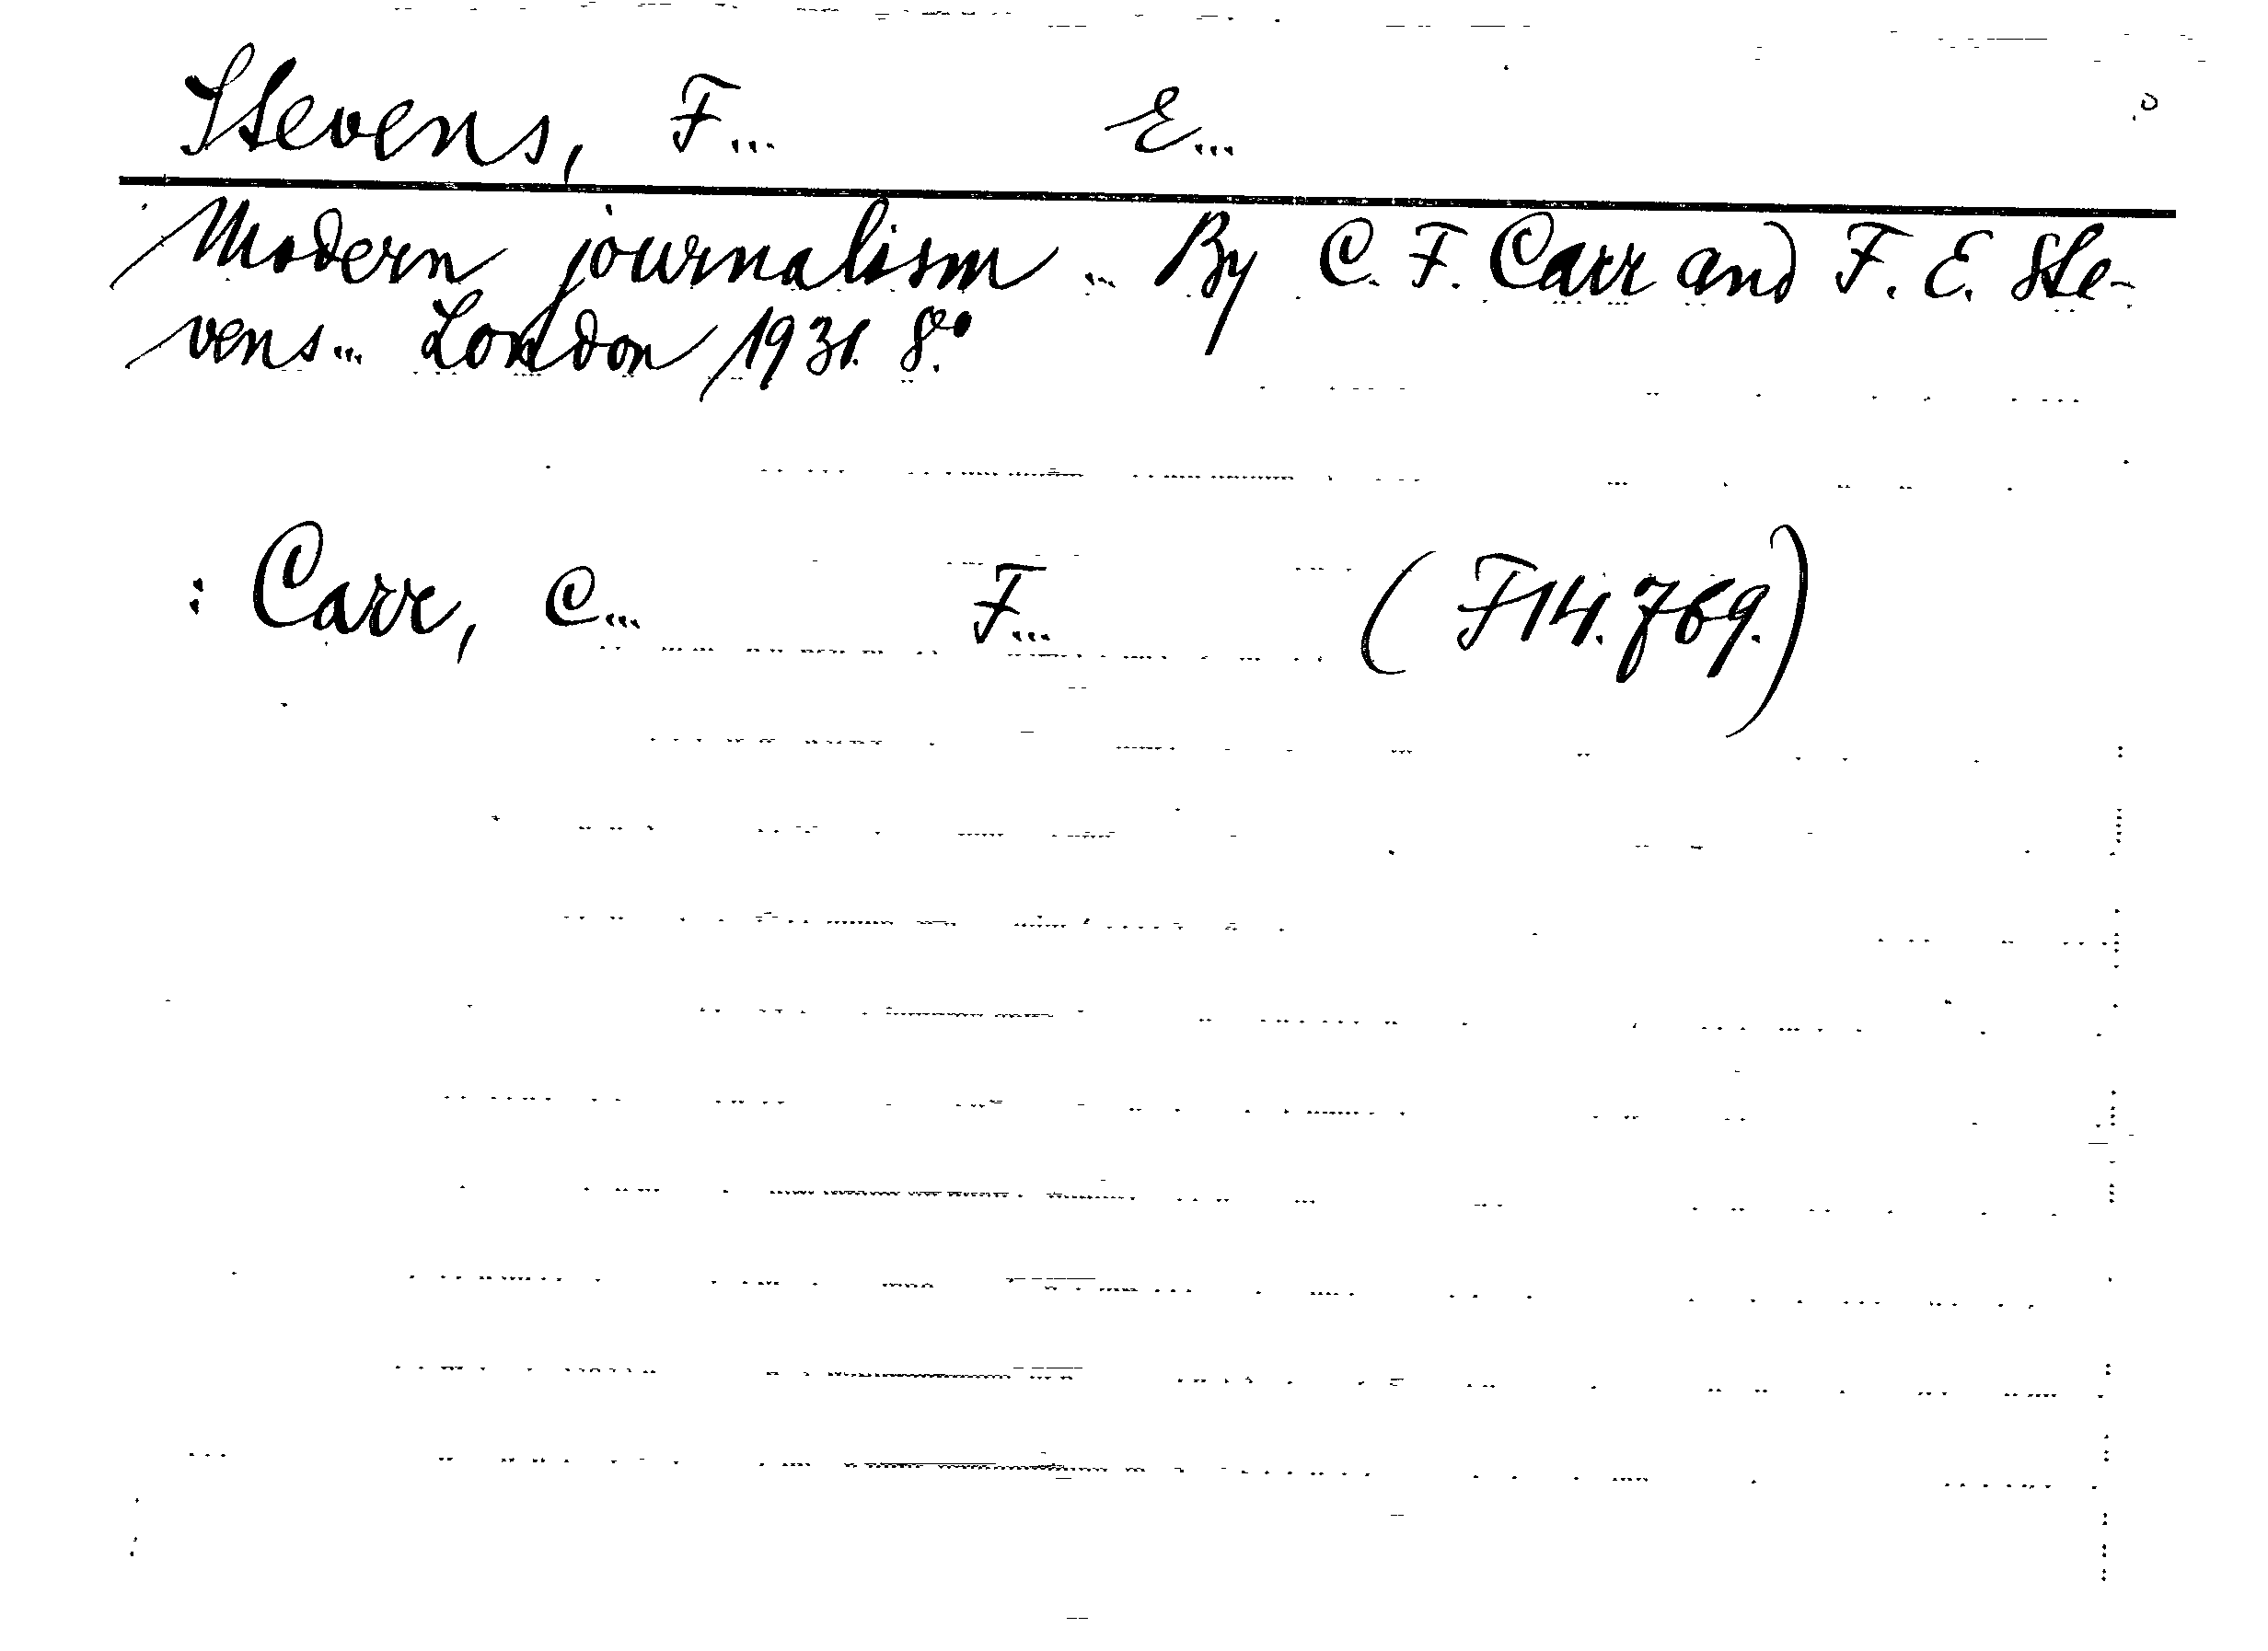 Stevens, F... E...
Modern journalism... By C. F. Carr and F. E. Ste-
vens... London 1931. 8º.
: Carr, C... F... (F14.769.)